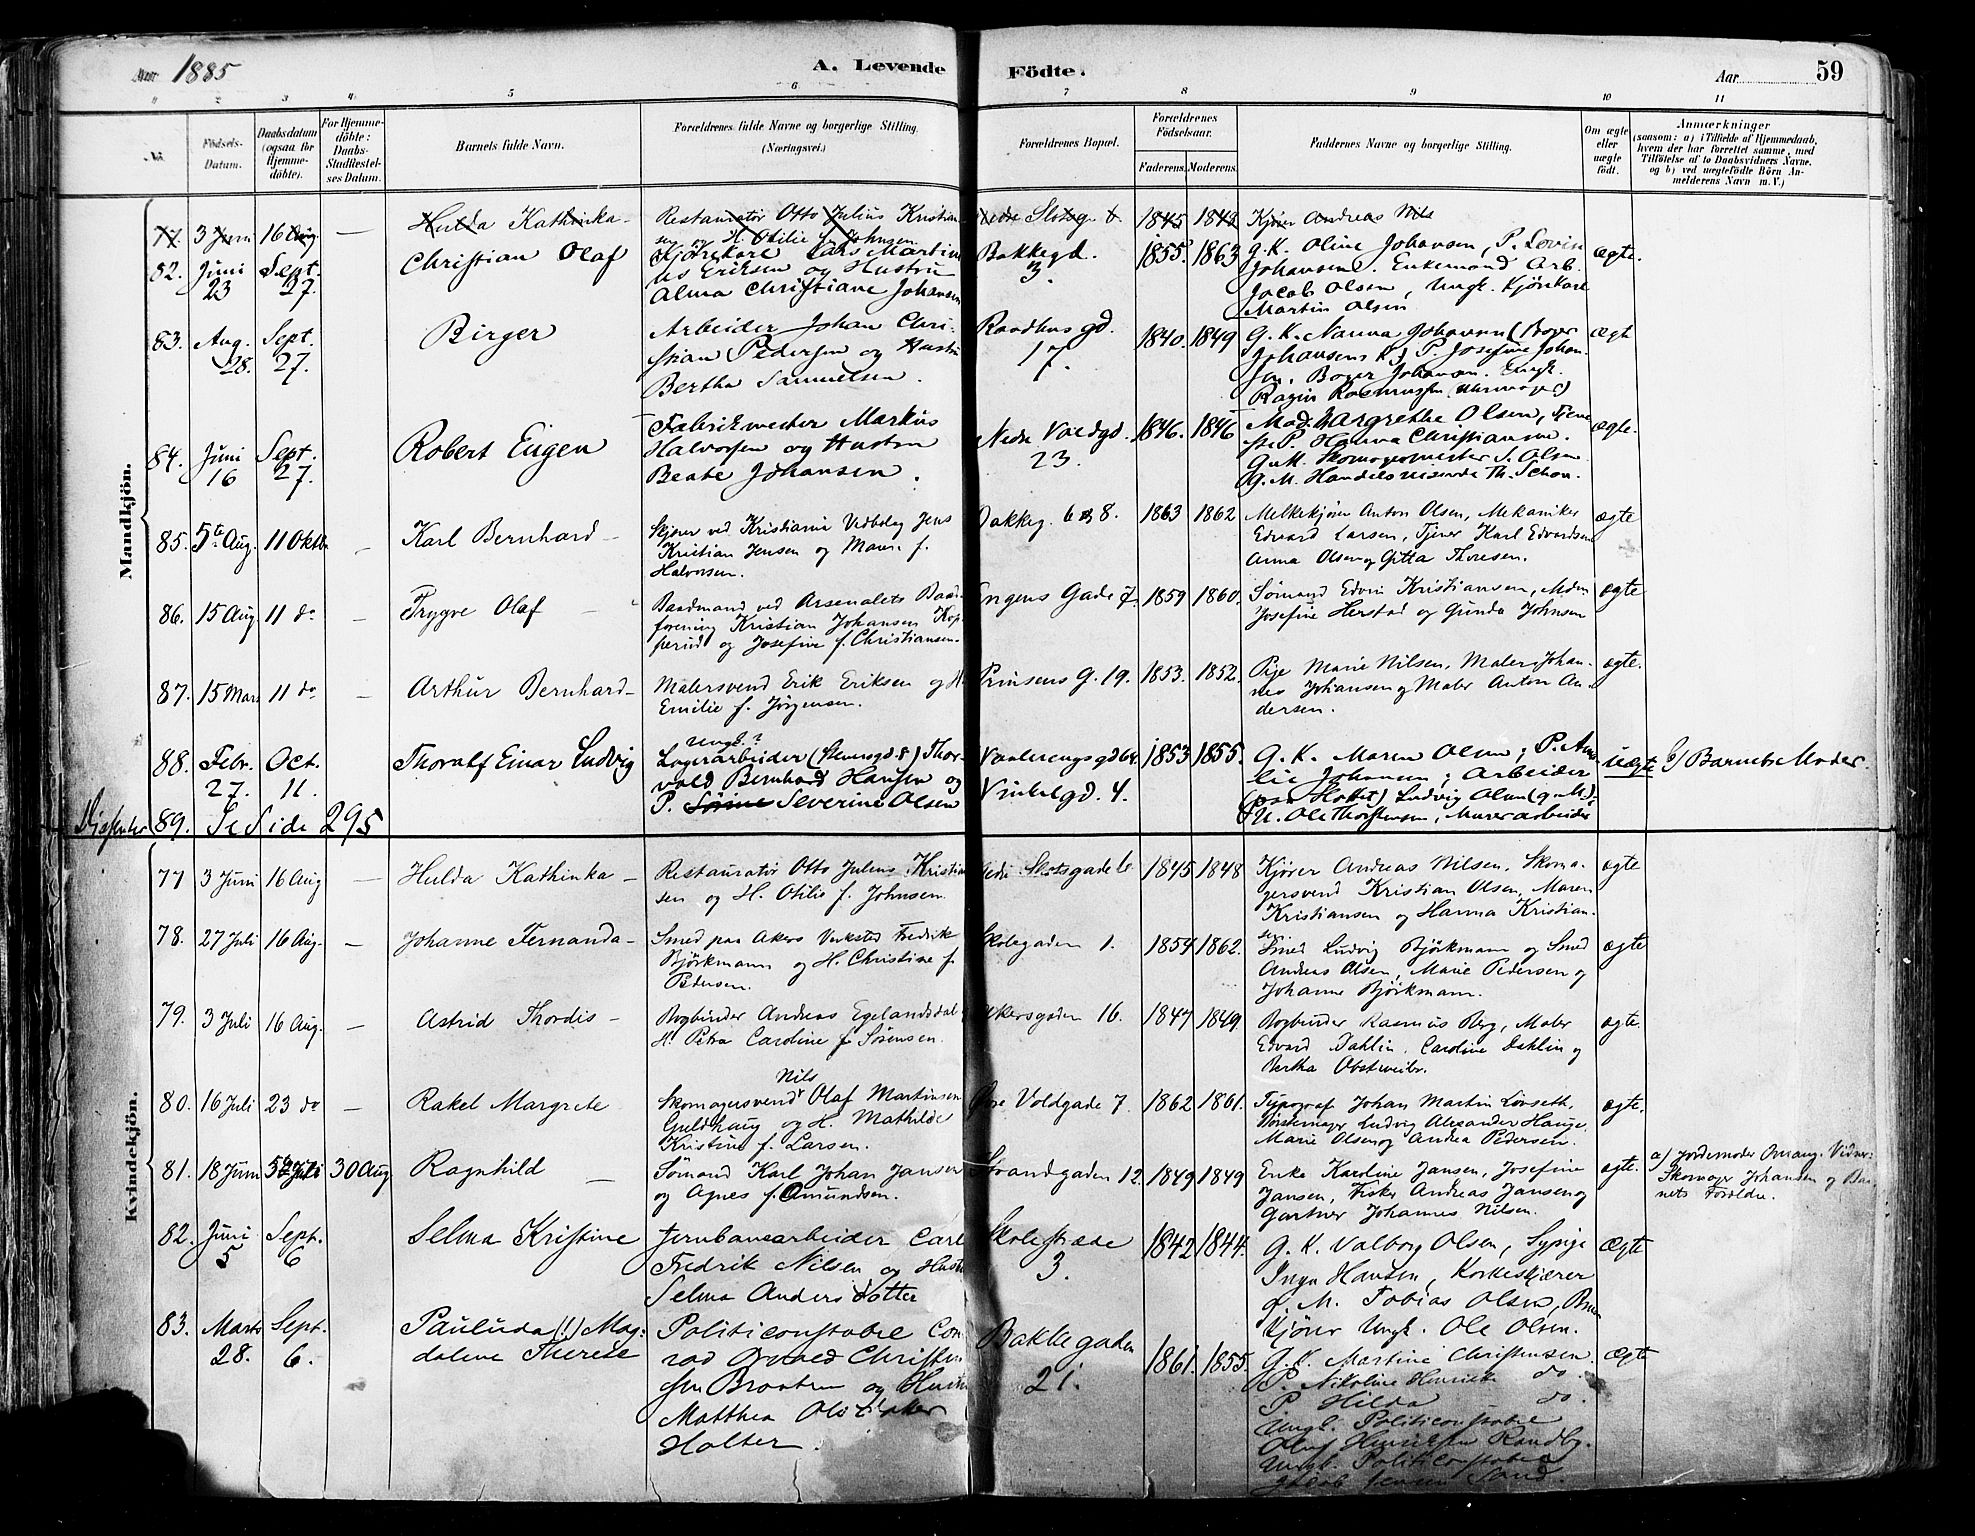 Aar 1885
A. Levende Födte.
Aar 59
1 2 3 4 5 6 7 8 9 10 11
No.
Födsels-Datum.
Daabsdatum (ogsaa for Hjemme-döbte).
For Hjemme-döbte: Daabs-Stadfæstel-ses Datum.
Barnets fulde Navn.
Forældrenes fulde Navne og borgerlige Stilling. (Næringsvei.)
Forældrenes Bopæl.
Forældrenes Födselsaar.
Faderens. Moderens.
Faddernes Navne og borgerlige Stilling.
Om ægte eller uægte födt.
Anmærkninger
(saasom: a) i Tilfælde af Hjemmedaab,
hvem der har forrettet samme, med
Tilföielse af to Daabsvidners Navne.
og b) ved uægtefödte Börn An-
melderens Navn m. V.)
Mandkjön.
77. 3 Juni 16 Aug. — Hulda Kathinka - Restauratør Otto Julius Kristian- Nedre Slotsg. 6 1845 1843 Kjører Andreas Nils
sen og H. Otilie f. Johnsen
82. Juni 23 Sept. 27. Christian Olaf Kjörekarl Lars Martin Bakkegd. 3. 1855. 1863 G.K. Oline Johansen, P. Lovise ægte.
us Eriksen og Hustru Johansen. Enkemand Arb.
Alma Christiane Johansen Jacob Olsen, Ungk. Kjörekarl
Martin Olsen
83. Aug. 28. Sept. 27. Birger Arbeider Johan Chri- Raadhusgd. 17. 1840. 1849 G.K. Nanna Johansen (Boyer ægte
stian Pedersen og Hustru Johansens K.) P. Josefine Johan-
Bertha Samuelsen. sen, Boyer Johansen. Ungk.
84. Juni 16 Sept. 27. Robert Eugen Fabrikmester Markus Nedre Voldgd. 23. 1846. 1846 Mad. Margrethe Olsen, Tjene ægte.
Halvorsen og Hustru ste P. Hanna Christiansen.
Beate Johansen. G.M. Skomagermester S. Olsen
G.M. Handelsreisende Th. Schou.
85. 5te Aug. 11 Oktbr — Karl Bernhard - Kjører ved Kristiania Vedbolag Jens Bakkeg. 6 og 8. 1863 1862 Melkekjører Anton Olsen, Mekaniker ægte
Kristian Jensen og Maren f. Edvard Larsen, Tjener Karl Edvardsen
Halvorsen. Anna Olsen og Gitta Thoresen.
86. 15 Aug 11 do — Trygve Olaf - Baadmand ved Arsenalets Baad- Engens Gade 7. 1859 1860. Sømand Edvin Kristiansen, ægte
forening Kristian Johansen Kop Josefine Herstad og Gunda Johnsen
perud og Josefine f. Christiansen-
87. 15 Mars 11 do — Arthur Bernhard - Malersvend Erik Eriksen og H. Prinsens G. 19. 1853. 1852. Pige Marie Nilsen, Maler Johan- ægte.
Emilie f. Jörgensen. nes Johansen og Maler Anton An-
dersen.
88. Febr. 27. Oct. 11. Thoralf Einar Ludvig Ungk.? Vaalerengsgd 64 1853 1855. G.K. Maren Olsen; P. Ama uægte b) Barnets Moder.
Lagerarbeider (Stenersgd. 8) Thor- lie Johansen; Arbeider
vold Bernhard Hansen og Vinkelgd. 4. Ludvig Olsen (g.M.);
P. Sörine Severine Olsen U. Ole Thorstensen, Murerarbeider
Dissenter 89. Se Side 295
Kvindekjön.
77 3 Juni 16 Aug — Hulda Kathinka - Restauratør Otto Julius Kristian Nedre Slotsgade 6 1845 1848 Kjører Andreas Nilsen, Skoma- ægte
sen og H. Otilie f. Johnsen. gersvend Kristian Olsen, Maren
Kristiansen og Hanna Kristian-
sen
78. 27 Juli 16 Aug. — Johanne Fernanda - Smed paa Akers Verksted Fredrik Skolegaden 1. 1859 1862. Smed Ludvig Björkmann og Smed ægte
Björkmann og H. Christine f. Andreas Olsen, Marie Pedersen og
Pedersen. Johanne Björkmann.
79. 3 Juli 16 Aug. — Astrid Thordis - Bogbinder Andreas Egelandsdal Akersgaden 16. 1847 1849 Bogbinder Rasmus Berg, Maler ægte.
H. Petra Caroline f. Sørensen. Edvard Dahlin, Caroline Dahlin og
Bertha
80. 16 Juli 23 do — Rakel Margrete Skomagersvend Nils Olaf Martinsen Øvre Voldgade 7. 1862 1861. Typograf Johan Martin Lövseth, ægte.
Guldhaug og H. Mathilde Børstemager Ludvig Alexander Hauge,
Kristine f. Larsen. Marie Olsen og Andrea Pedersen.
81. 18 Juni Juli 30 Aug Ragnhild — Sömand Karl Johan Jansen Strandgaden 12 1849 1849 Enke Karoline Jansen, Josefine ægte. a) Jordemoder Omang. Vidner:
og Agnes f. Amundsen. Jansen, Fisker Andreas Jansen og Skomager Johansen og Bar-
Gartner Johannes Nilsen. nets Forældre.
82. Juni 5 Sept. 6 Selma Kristine Jernbanearbeider Carl Skolestræde 3. 1842 1844. G.K. Valborg Olsen, Sypige ægte
Fredrik Nilsen og Hustru Inga Hansen, Korkeskjærer
Selma Anders Datter g.M. Tobias Olsen,
kjörer Ungk. Ole Olsen.
83. Marts 28. Sept. 6. Pauluda (!) Mag- Politiconstabel Con- Bakkegaden 21. 1861. 1855. G.K. Martine Christensen. ægte
dalene Therese rad Christen P. Nikoline Henriette do.
sen Braaten og Hustru P. Hilda do.
Matthea Holter. Ungk. Politiconstabel
Oluf Henriksen Randby.
Ungk. Politiconstabel
Jacob Jensen Sand.